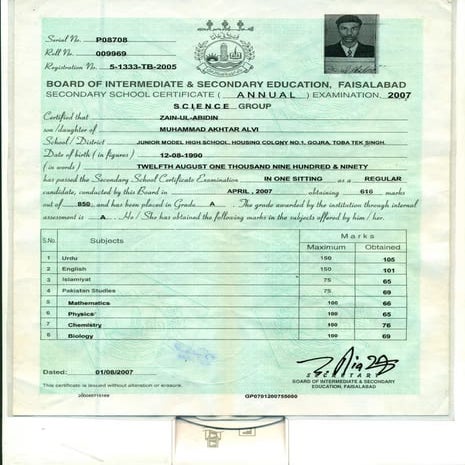 Serial No. P08708
Roll No. 009969
Registration No. 5-1333-TB-2005
BOARD OF INTERMEDIATE & SECONDARY EDUCATION, FAISALABAD
SECONDARY SCHOOL CERTIFICATE ( ANNUAL ) EXAMINATION, 2007
SCIENCE GROUP
Certified that ZAIN-UL-ABIDIN
son/daughter of MUHAMMAD AKHTAR ALVI
School / District JUNIOR MODEL HIGH SCHOOL, HOUSING COLONY NO.1, GOJRA, TOBA TEK SINGH.
Date of birth ( in figures ) 12-08-1990
( in words ) TWELFTH AUGUST ONE THOUSAND NINE HUNDRED & NINETY
has passed the Secondary School Certificate Examination IN ONE SITTING as a REGULAR
candidate, conducted by this Board in APRIL, 2007 obtaining 616 marks
out of 850 and has been placed in Grade A. The grade awarded by the institution through internal
assessment is A. He / She has obtained the following marks in the subjects offered by him / her.
S.No. Subjects Marks
Maximum Obtained
1 Urdu 150 105
2 English 150 101
3 Islamiyat 75 65
4 Pakistan Studies 75 69
5 Mathematics 100 66
6 Physics 100 65
7 Chemistry 100 76
8 Biology 100 69
SECRETARY
Dated: 01/08/2007
BOARD OF INTERMEDIATE & SECONDARY
EDUCATION, FAISALABAD
This certificate is issued without alteration or erasure.
GP0791200755000